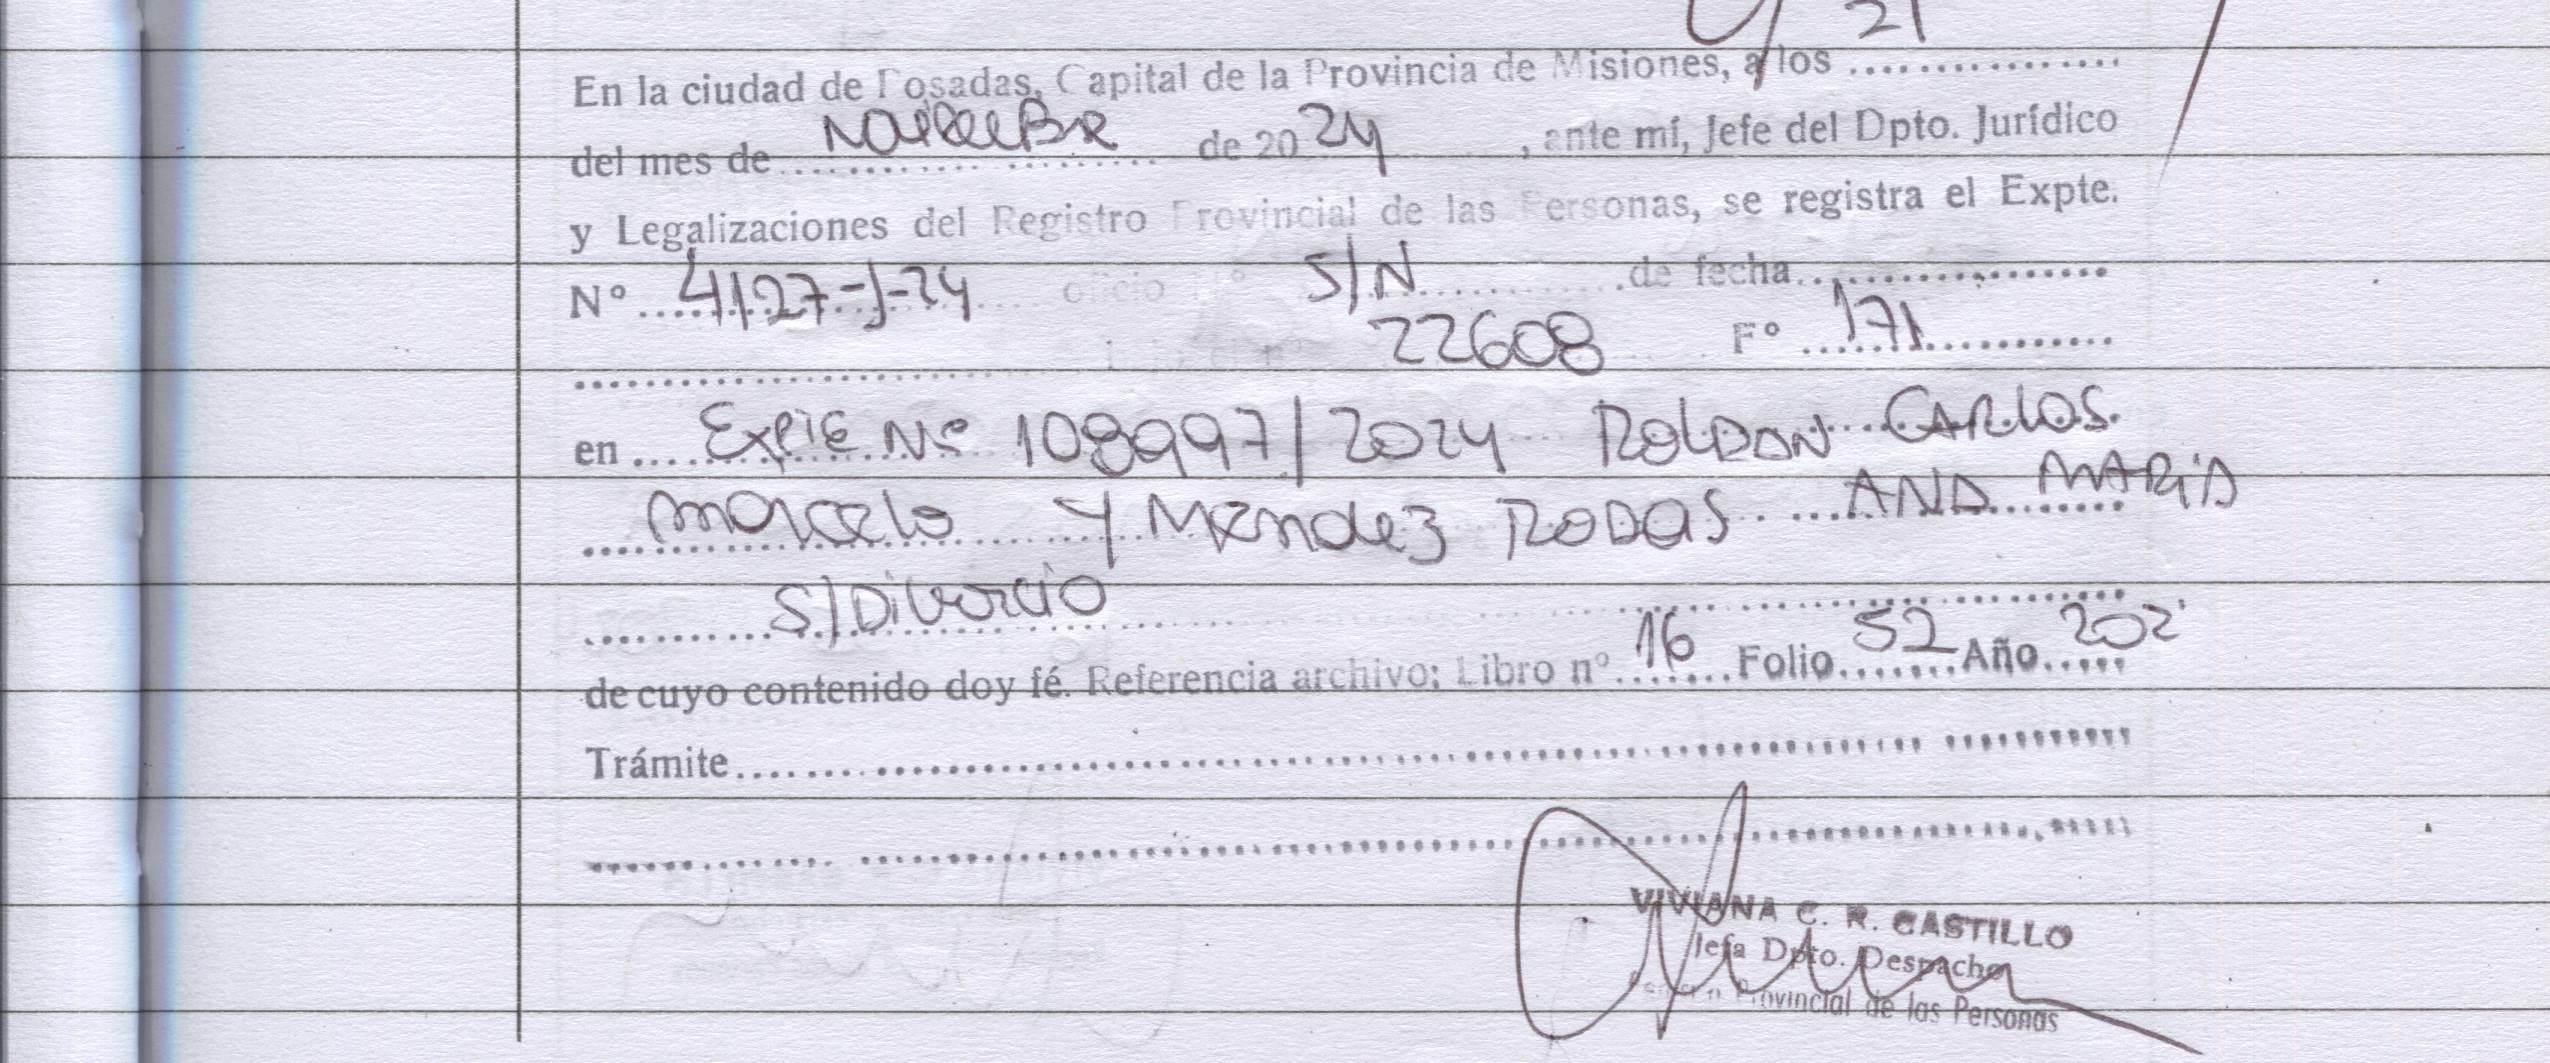 21
En la ciudad de Posadas, Capital de la Provincia de Misiones, a los ................
del mes de .... NOVIEMBRE .... de 20 24 , ante mí, Jefe del Dpto. Jurídico
y Legalizaciones del Registro Provincial de las Personas, se registra el Expte.
N° .... 4127-J-24 .... oficio N° S/N .... de fecha ................
................ 22608 F° .... 171 ................
en .... EXPTE Nº 108997/2024 ROLDAN CARLOS
MARCELO Y MENDEZ RODAS ANA MARIA
S/DIVORCIO
de cuyo contenido doy fé. Referencia archivo: Libro n° 16 Folio 52 Año 202
Trámite ................
VIVIANA C. R. CASTILLO
Jefa Dpto. Despacho
Registro Provincial de las Personas